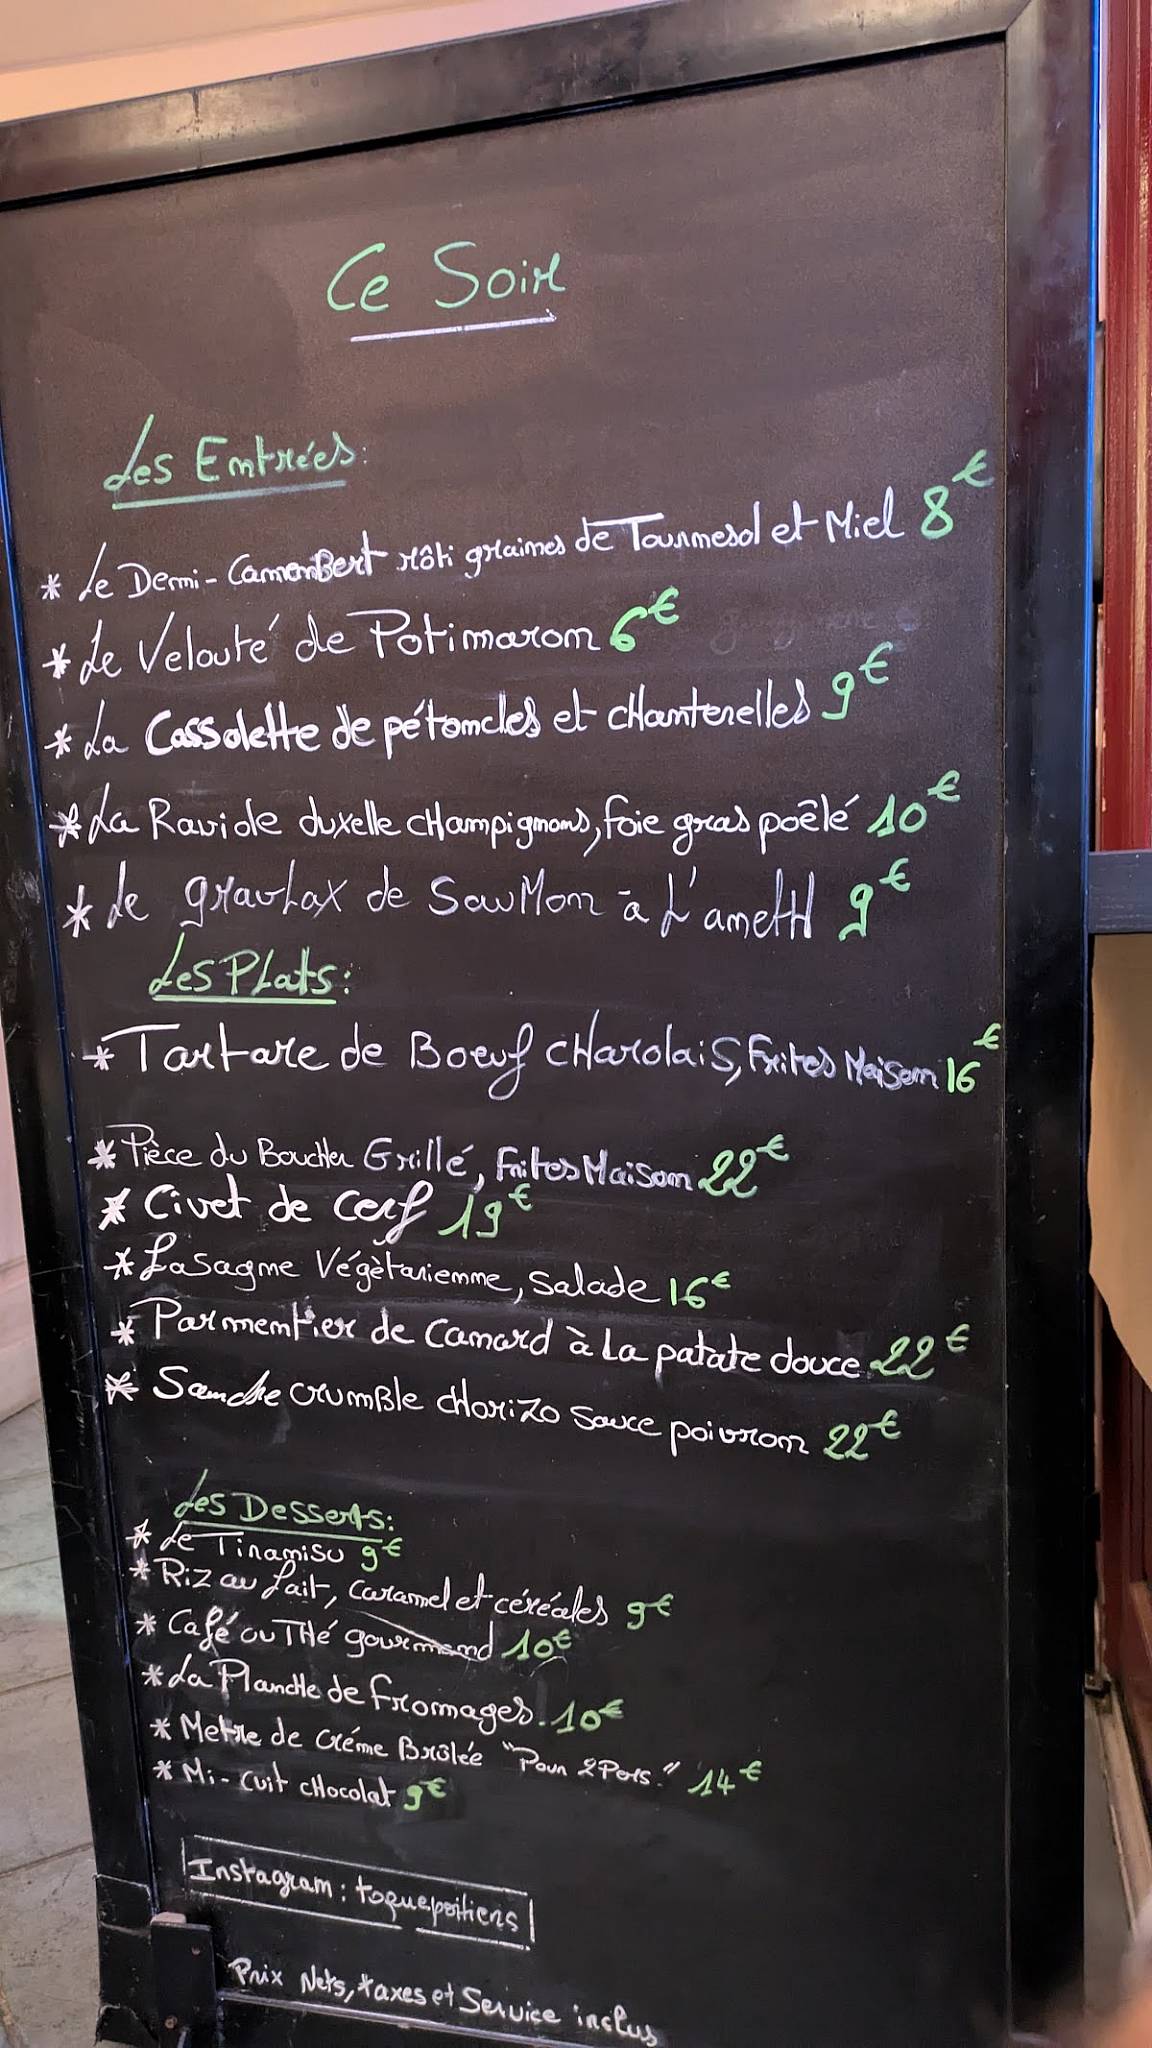 Ce Soir
Les Entrées:
* Le Demi-Camembert rôti graines de Tournesol et Miel 8€
* Le Velouté de Potimaron 6€
* La Cassolette de pétoncles et chanterelles 9€
* La Raviole duxelle champignons, foie gras poêlé 10€
* Le gravlax de SauMon à L'aneth 9€
Les Plats:
* Tartare de Boeuf charolais, Frites Maison 16€
* Pièce du Boucher Grillé, Frites Maison 22€
* Civet de cerf 19€
* Lasagne Végètarienne, salade 16€
* Parmentier de Canard à la patate douce 22€
* Sandre crumble chorizo sauce poivron 22€
Les Desserts:
* Le Tiramisu 9€
* Riz au Lait, caramel et céréales 9€
* Café ou Thé gourmand 10€
* La Planche de fromages. 10€
* Metre de créme Brûlée "Pour 2 Pers." 14€
* Mi-cuit chocolat 9€
Instagram: toquepoitiers
Prix Nets, taxes et Service inclus